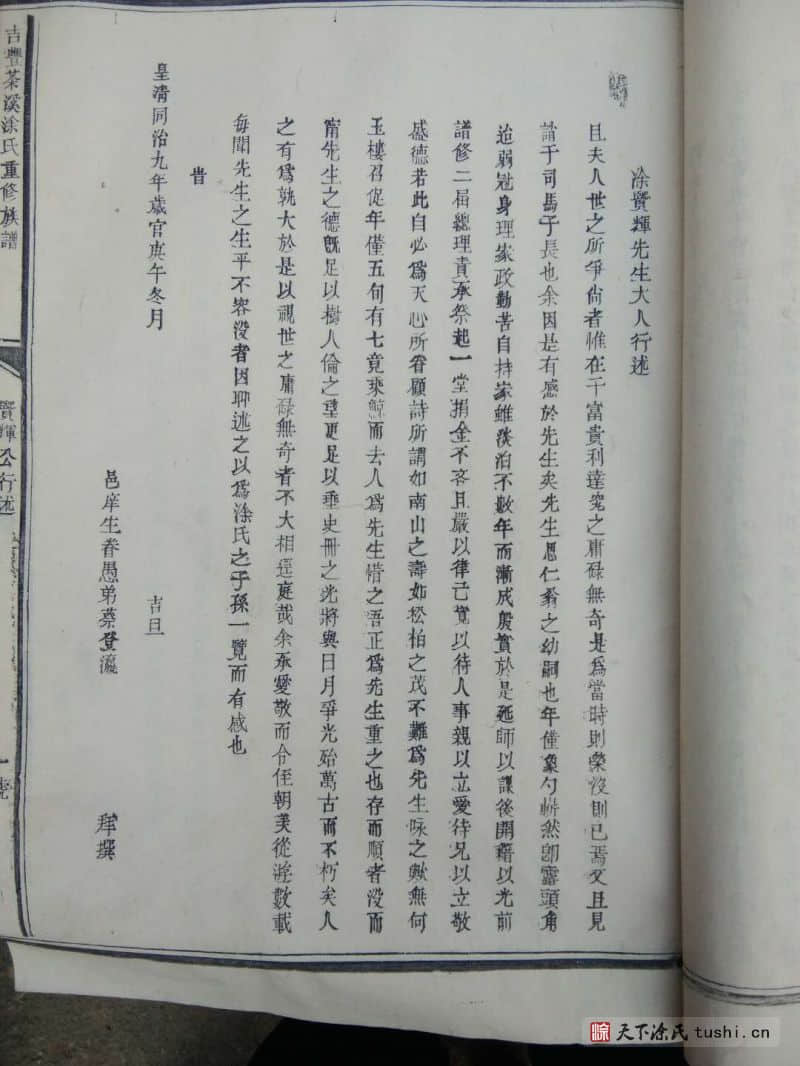 涂賢輝先生大人行述
且夫人世之所爭尚者惟在于富貴利達究之庸碌無奇是爲當時則榮沒則已焉父且見
請于司馬子長也余因是有感於先生矣先生思仁翁之幼嗣也年僅象勺嶄然卽露頭角
迨弱冠身理家政勤苦自持家雖淡泊不數年而漸成殷實於是延師以課後開籍以光前
譜修二届總理責承祭起一堂捐金不吝且嚴以律己寬以待人事親以立愛待兄以立敬
盛德若此自必爲天心所眷顧詩所謂如南山之壽如松柏之茂不難爲先生咏之歟無何
玉樓召促年僅五旬有七竟乘鯨而去人爲先生惜之吾正爲先生重之也存而順者沒而
甯先生之德旣足以樹人倫之望更足以垂史冊之光將與日月爭光始萬古而不朽矣人
之有爲孰大於是以視世之庸碌無奇者不大相逕庭哉余承愛敬而令侄朝美從遊數載
每聞先生之生平不容沒者因聊述之以爲涂氏之子孫一覽而有感也
旹
皇清同治九年歲官庚午冬月 吉旦
邑庠生眷愚弟蔡登瀛 拜撰
吉豐茶溪涂氏重修族譜 賢輝公行述
涂 天下涂氏 tushi.cn